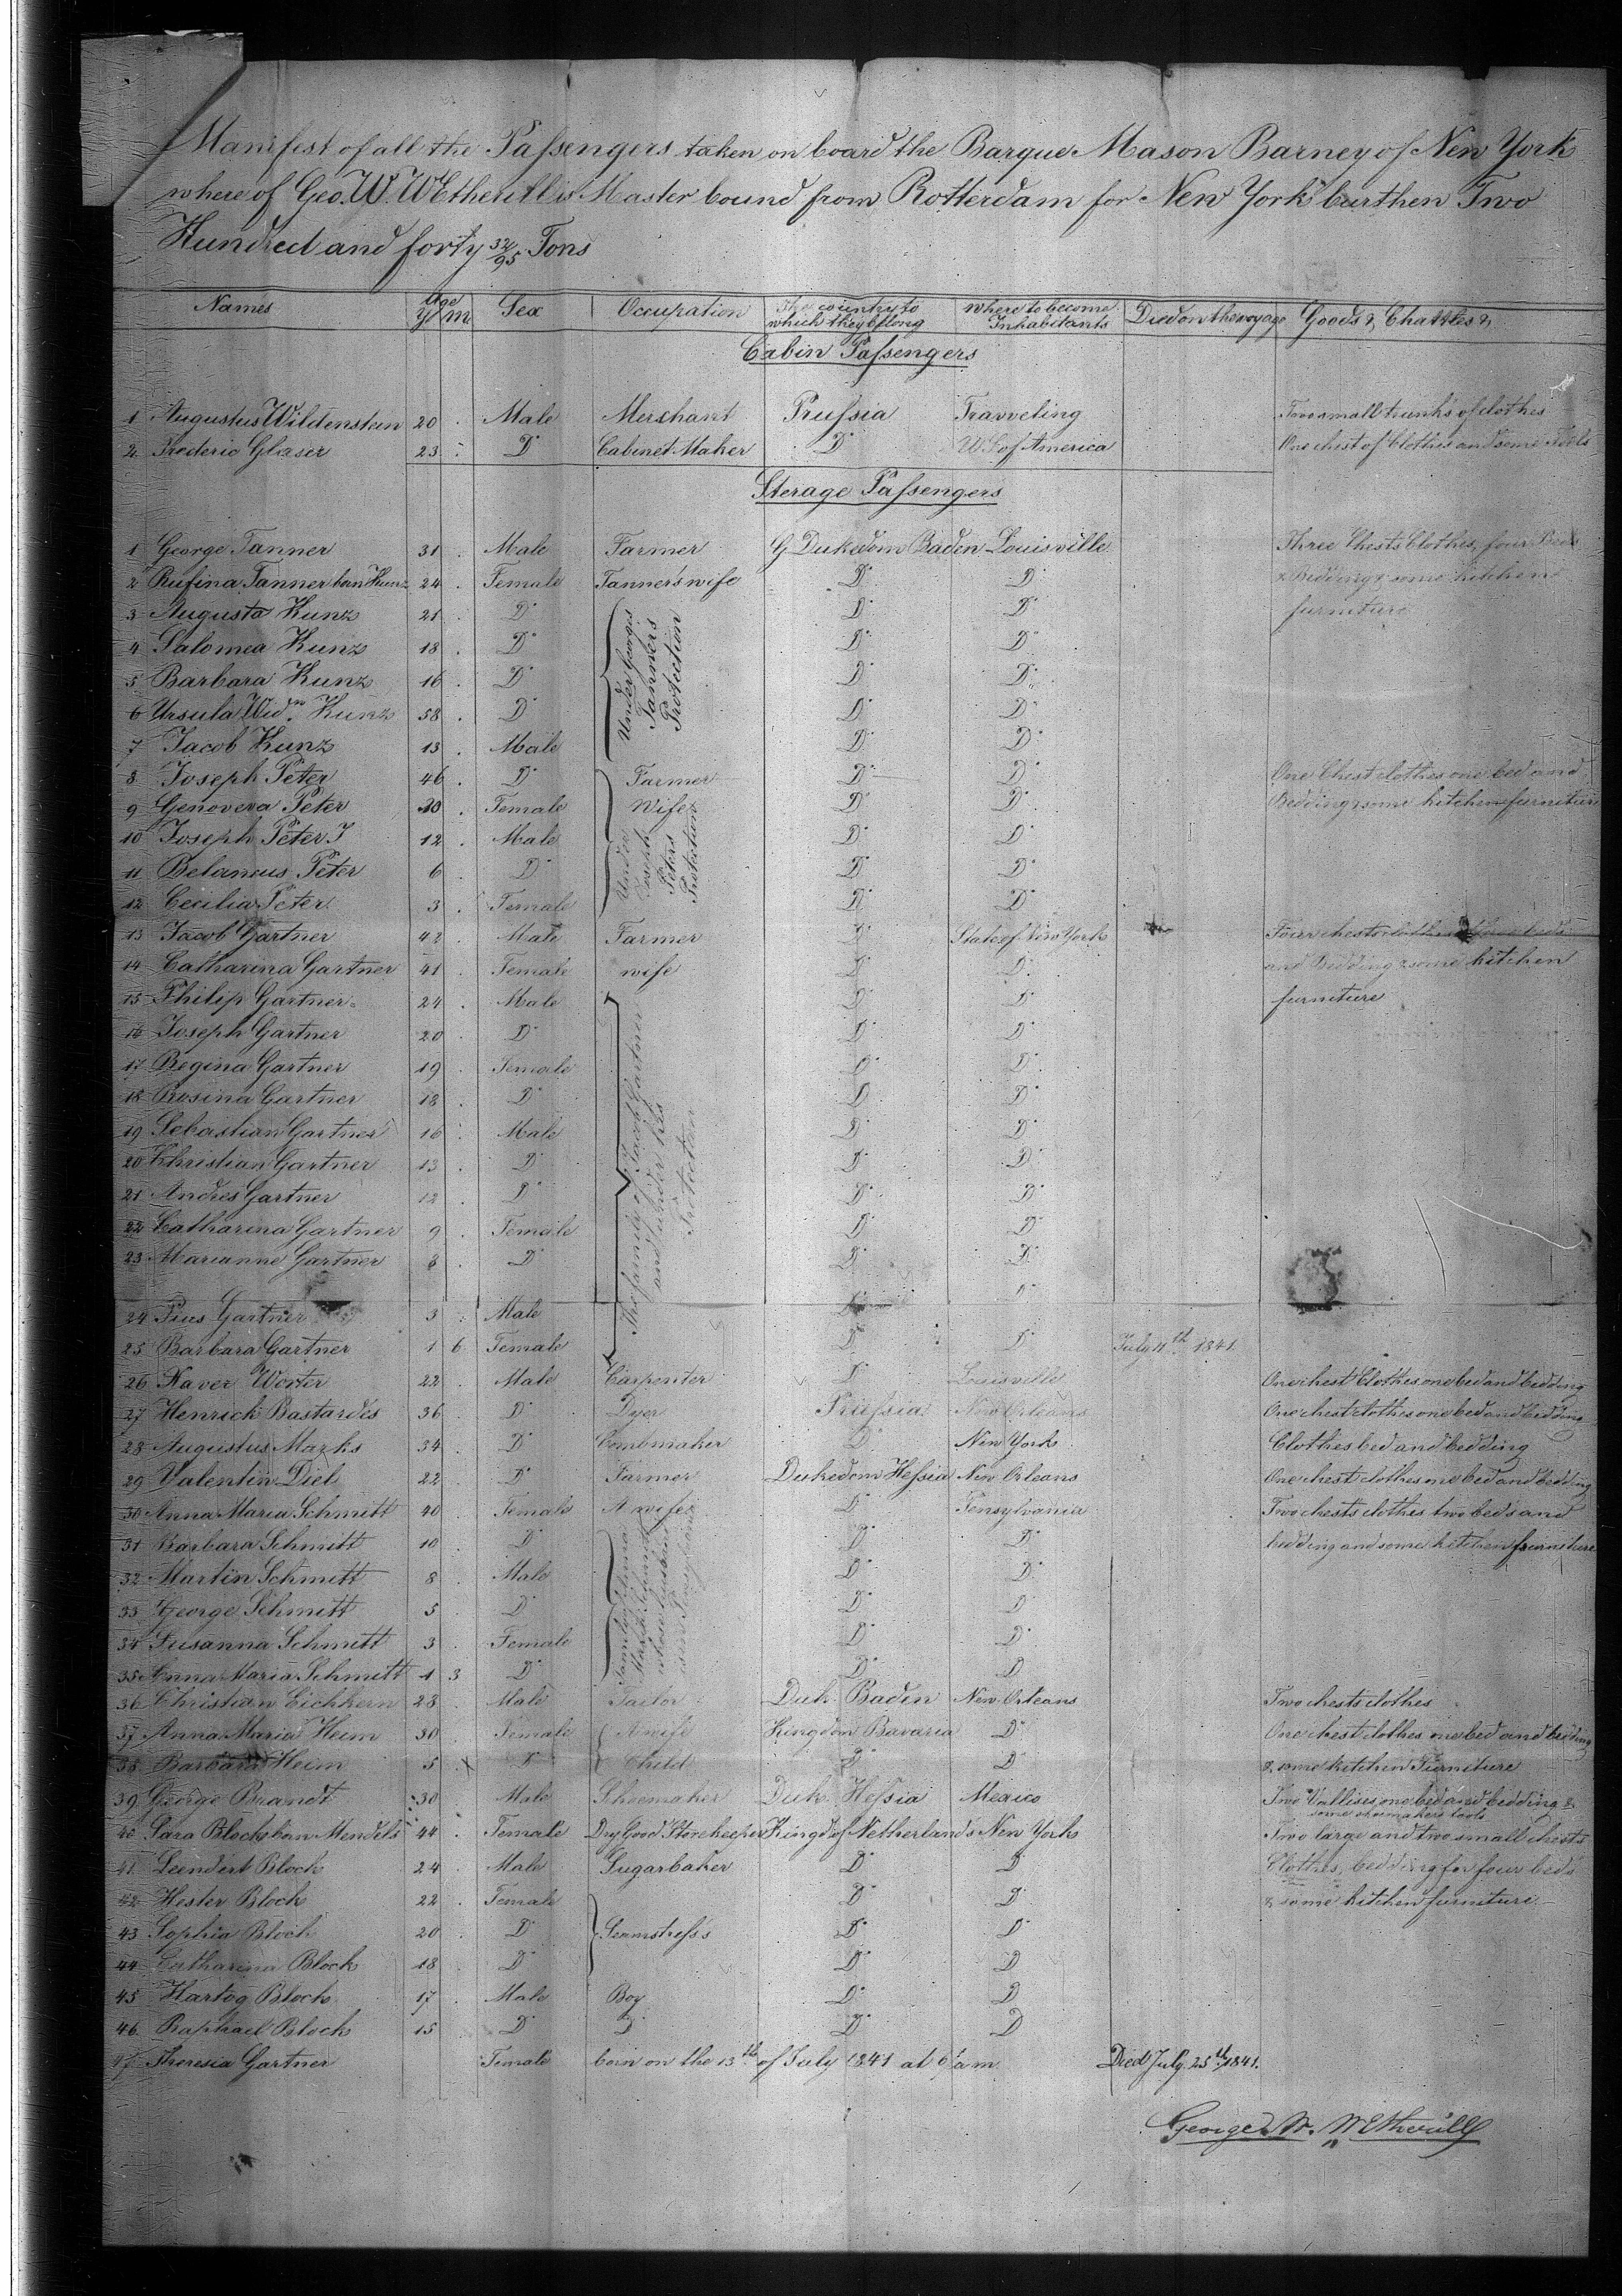 Manifest of all the Passengers taken on board the Barque Mason Barney of New York
where of Geo. W. WEtherill is Master bound from Rotterdam for New York burthen Two
Hundred and forty 32/95 Tons
Names Age Y m Sex Occupation The country to which they belong where to become Inhabitants Died on the voyage Goods & Chattles &
Cabin Passengers
1 Augustus Wildenstein 20 Male Merchant Prussia Travveling Two small trunks of clothes
2 Frederic Glaser 23 D° Cabinet Maker D° U S of America One chest of Clothes and some Tools
Sterage Passengers
1 George Tanner 31 Male Farmer G Dukedom Baden Louisville Three Chests Clothes, four Beds
2 Rufina Tanner born Kunz 24 Female Tanners wife D° D° & Bedding & some kitchen
3 Augusta Kunz 21 D° Under Georgis Tanners Protection D° D° furniture
4 Salomea Kunz 18 D° D° D°
5 Barbara Kunz 16 D° D° D°
6 Ursula Widn Kunz 58 D° D° D°
7 Jacob Kunz 13 Male D° D°
8 Joseph Peter 46 D° Farmer D° D° One Chest clothes one bed and
9 Genovera Peter 30 Female Wife D° D° Bedding & some kitchen furniture
10 Joseph Peter J 12 Male Under Joseph Peters Protection D° D°
11 Belancus Peter 6 D° D° D°
12 Cecilia Peter 3 Female D° D°
13 Jacob Gartner 42 Male Farmer D° State of New York Four chests clothes three beds
14 Catharina Gartner 41 Female wife D° D° and Bedding & some kitchen
15 Philip Gartner 24 Male The family of Jacob Gartner and under his Protection D° D° furniture
16 Joseph Gartner 20 D° D° D°
17 Regina Gartner 19 Female D° D°
18 Rosina Gartner 18 D° D° D°
19 Sebastian Gartner 16 Male D° D°
20 Khristian Gartner 13 D° D° D°
21 Andres Gartner 12 D° D° D°
22 Catharina Gartner 9 Female D° D°
23 Marianne Gartner 8 D° D° D°
24 Pius Gartner 3 Male D° D°
25 Barbara Gartner 1 6 Female D° D° July 11th 1841
26 Xaver Worter 22 Male Carpenter D° Louisville One chest Clothes one bed and bedding
27 Henrich Bastardes 36 D° Dyer Prussia New Orleans One chest clothes one bed and bedding
28 Augustus Marks 34 D° Combmaker D° New York Clothes bed and bedding
29 Valentin Diel 22 D° Farmer Dukedom Hessia New Orleans One chest clothes one bed and bedding
30 Anna Maria Schmitt 40 Female A wife D° Pensylvania Two chests clothes two beds and
31 Barbara Schmitt 10 D° Family of Anna Maria Schmitt whose husband is in Pensylvania D° D° bedding and some kitchen furniture
32 Martin Schmitt 8 Male D° D°
33 George Schmitt 5 D° D° D°
34 Susanna Schmitt 3 Female D° D°
35 Anna Maria Schmitt 1 3 D° D° D°
36 Christian Eichkern 28 Male Tailor Duk. Baden New Orleans Two chests clothes
37 Anna Maria Heim 30 Female A wife Kingdon Bavaria D° One chest clothes one bed and bedding
38 Barbara Heim 5 D° Child D° D° & some kitchen Furniture
39 George Brandt 30 Male Shoemaker Duk. Hessia Mexico Two Vallises, one bed and bedding & some shoemakers tools
40 Sara Block born Mendels 44 Female Dry Good Storekeeper Kingd of Netherlands New York Two large and two small chests
41 Leendert Block 24 Male Sugarbaker D° D° Clothes, bedding for four beds
42 Hester Block 22 Female Seamstress's D° D° & some kitchen furniture
43 Sophia Block 20 D° D° D°
44 Catharina Block 18 D° D° D°
45 Hartog Block 17 Male Boy D° D°
46 Raphael Block 15 D° D° D° D°
47 Theresia Gartner Female born on the 13th of July 1841 at 6 a m Died July 25th 1841.
George W. WEtherill